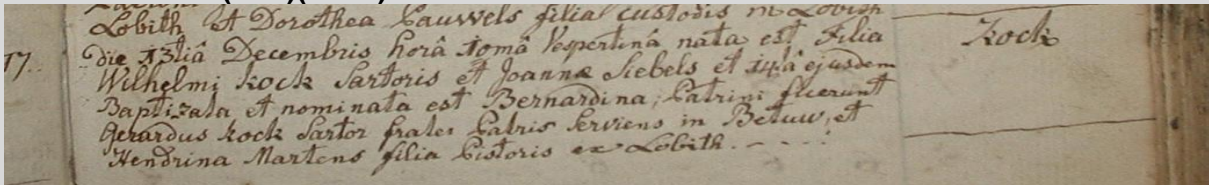 Lobith et Dorothea Pauwels filia custodis in Lobith
17. die 13tiâ Decembris horâ 10mâ Vespertinâ nata est filia Kock
Wilhelmi Kock Sartoris et Joannæ Siebels et 14tâ ejusdem
Baptizata et nominata est Bernardina; Patrini fuerunt
Gerardus Kock Sartor frater Patris Serviens in Betuw, et
Hendrina Martens filia Pistoris ex Lobith. - - - -